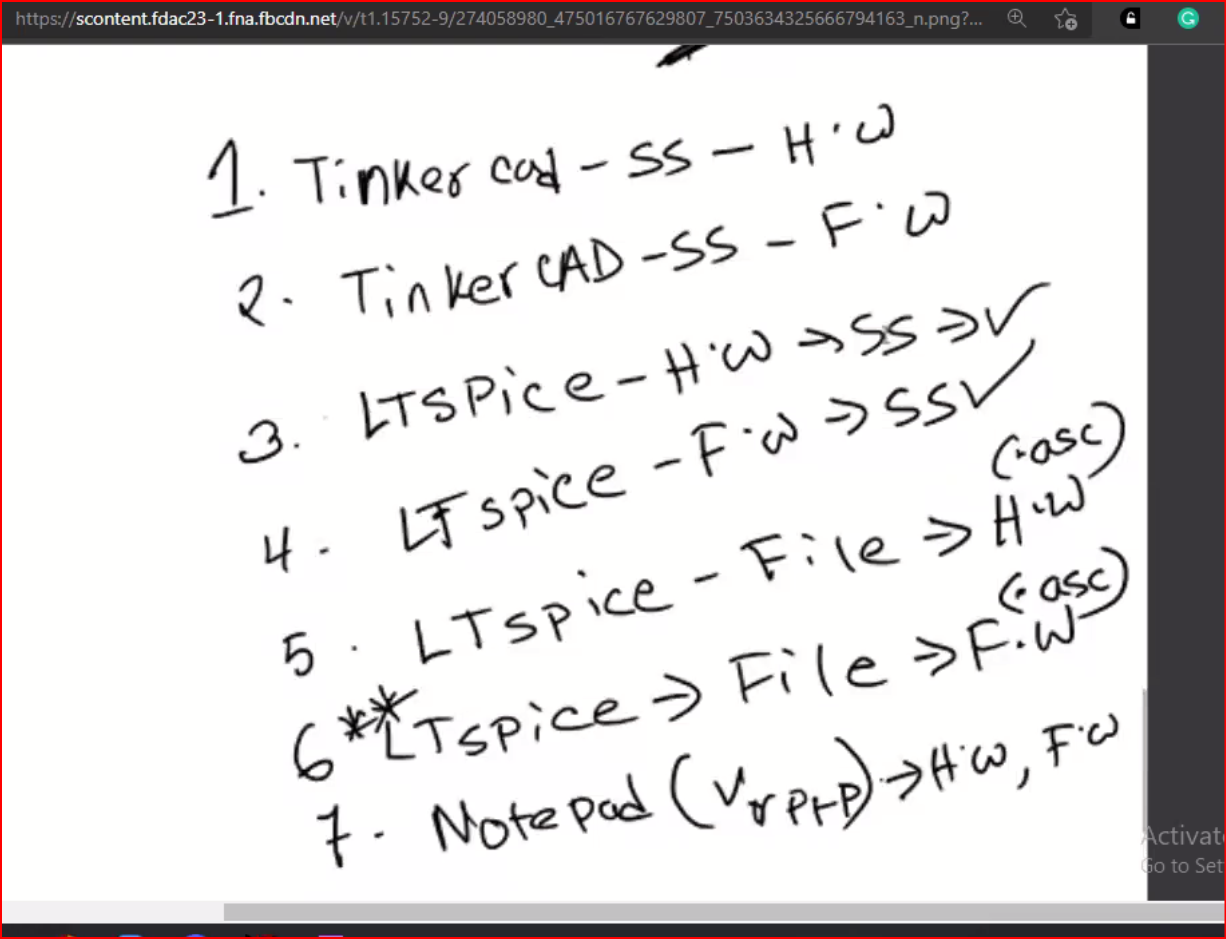 https://scontent.fdac23-1.fna.fbcdn.net/v/t1.15752-9/274058980_475016767629807_7503634325666794163_n.png?...
1. Tinker cad - SS - H.W
2. Tinker CAD - SS - F.W
3. LTSPice - H.W => SS => ✓
4. LTspice - F.W => SS ✓
(.asc)
5. LTspice - File => H.W
(.asc)
6 ** LTspice => File => F.W
7. Notepad (Vr PrP) -> H.W, F.W
Activat
Go to Set